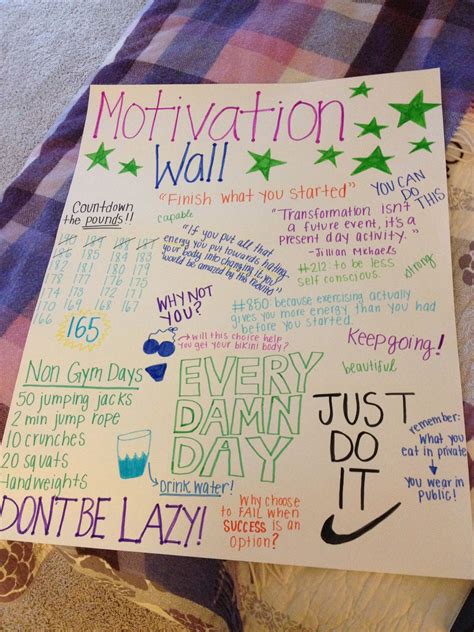 Motivation
Wall
"Finish what you started"
YOU CAN
DO
THIS
Countdown
the pounds!!
capable
"If you put all that
energy you put towards hating
your body into changing it you
would be amazed by the results"
"Transformation isn't
a future event, it's a
present day activity."
-Jillian Michaels
#212: to be less
self conscious.
strong
182 181 180 179
178 177 176 175
171
170 169 168 167
166
165
WHY NOT
YOU?
#850: because exercising actually
gives you more energy than you had
before you started.
will this choice help
you get your bikini body?
Keep going!
beautiful
Non Gym Days
50 jumping jacks
2 min jump rope
10 crunches
20 squats
Handweights
EVERY
DAMN
DAY
JUST
DO
IT
remember:
what you
eat in private
you wear in
public!
Drink water!
Why choose
to FAIL when
SUCCESS is an
option?
DON'T BE LAZY!